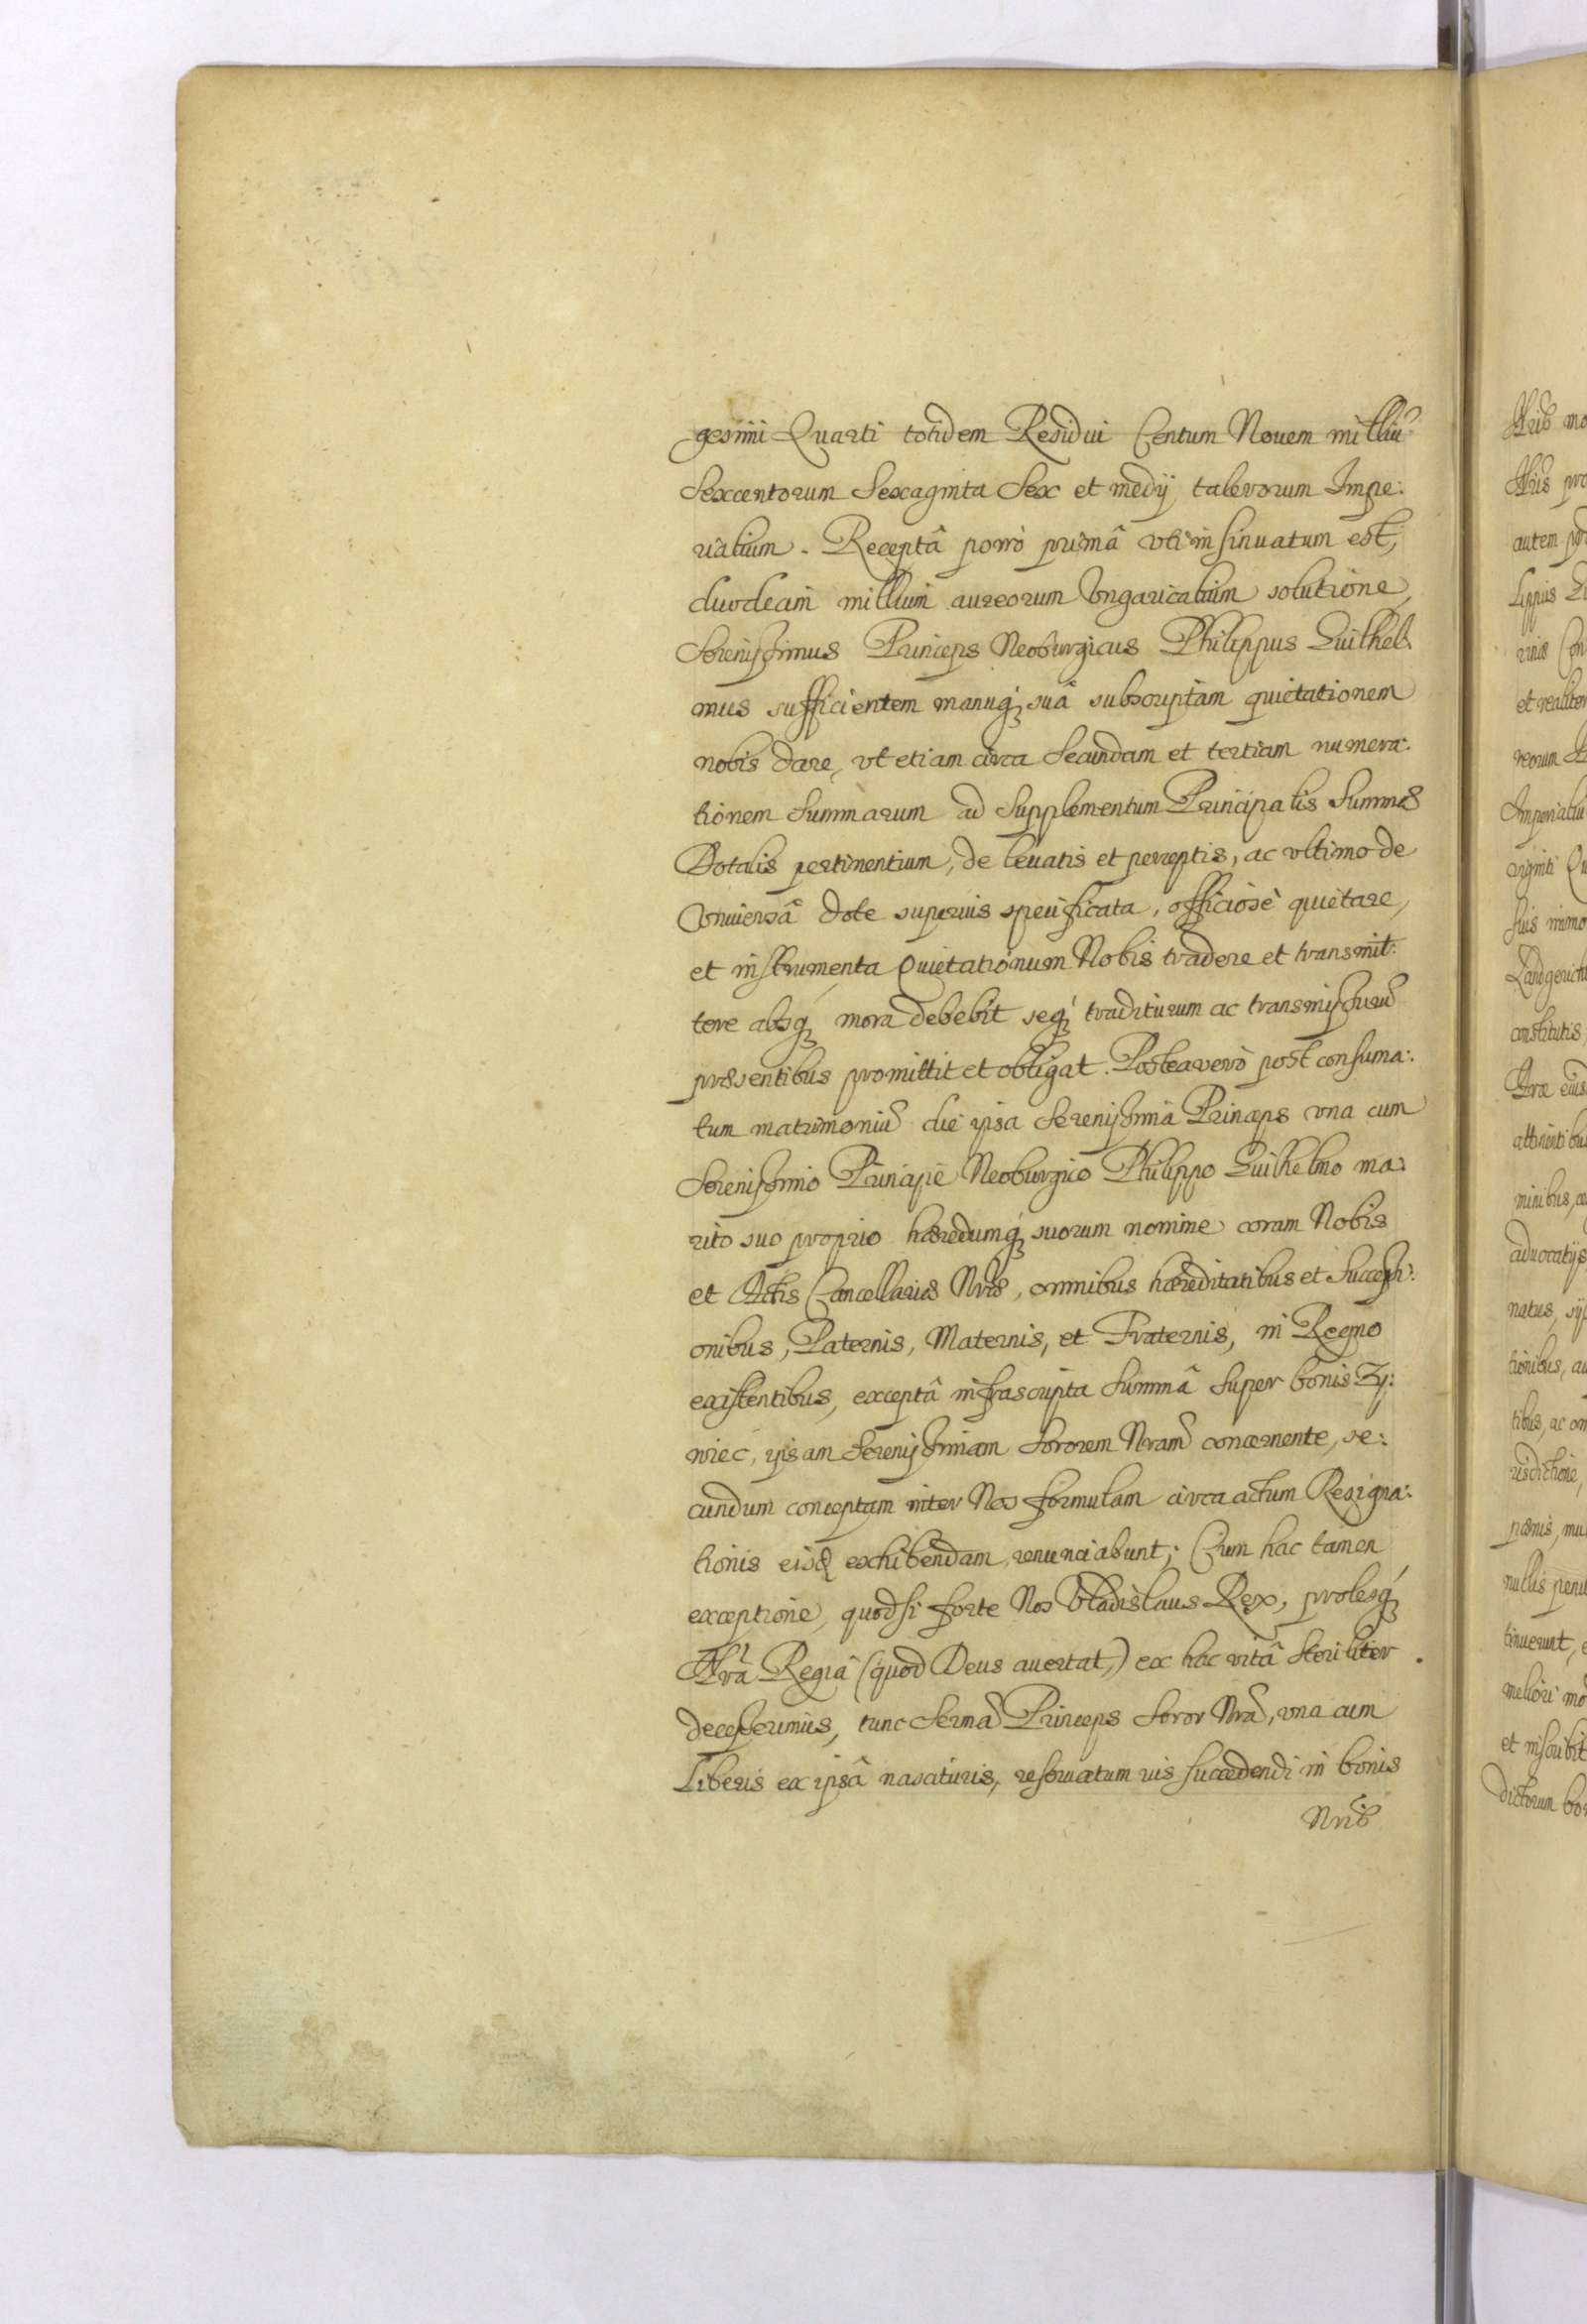 gesimi Quarti totidem Residui Centum Nouem milliũ
Sexcentorum Sexaginta Sex et medij talerorum Impe:
rialium. Receptâ porrò primâ vti insinuatum est,
duodecim millium aureorum Vngaricalium solutione,
Serenissimus Princeps Neoburgicus Philippus Guilhel:
mus sufficientem manuq́ suâ subscriptam quietationem
nobis dare, vt etiam circa Secundam et tertiam numera:
tionem Summarum ad Supplementum Principalis Summæ
Dotalis pertinentium, de leuatis et perceptis, ac vltimo de
Vniuersâ dote superius specificata, officiosè quietare,
et instrumenta Quietationum Nobis tradere et transmit:
tere absq́ mora debebit seq́ traditurum ac transmissurũ
præsentibus promittit et obligat. Postea verò post consuma:
tum matrimoniũ die ipsa Serenissima Princeps vna cum
Serenissimo Principe Neoburgico Philippo Guilhelmo ma:
rito suo proprio hæredumq́ suorum nomine coram Nobis
et Actis Cancellariæ Nræ, omnibus hæreditatibus et Successi:
onibus, Paternis, Maternis, et Fraternis, in Regno
existentibus, exceptâ infrascripta Summâ Super bonis Zy:
wiec, ipsam Serenissimam Sororem Nram concernente, se:
cundum conceptam inter Nos formulam circa actum Resigna:
tionis eisd exhibendam, renunciabunt; Cum hac tamen
exceptione, quod si forte Nos Vladislaus Rex, prolesq́
Nra Regiâ (quod Deus auertat,) ex hac vitâ Steriliter
decesserimus, tunc Serma Princeps Soror Nra, vna cum
Liberis ex ipsâ nascituris, reseruatum ius succedendi in bonis
Nris